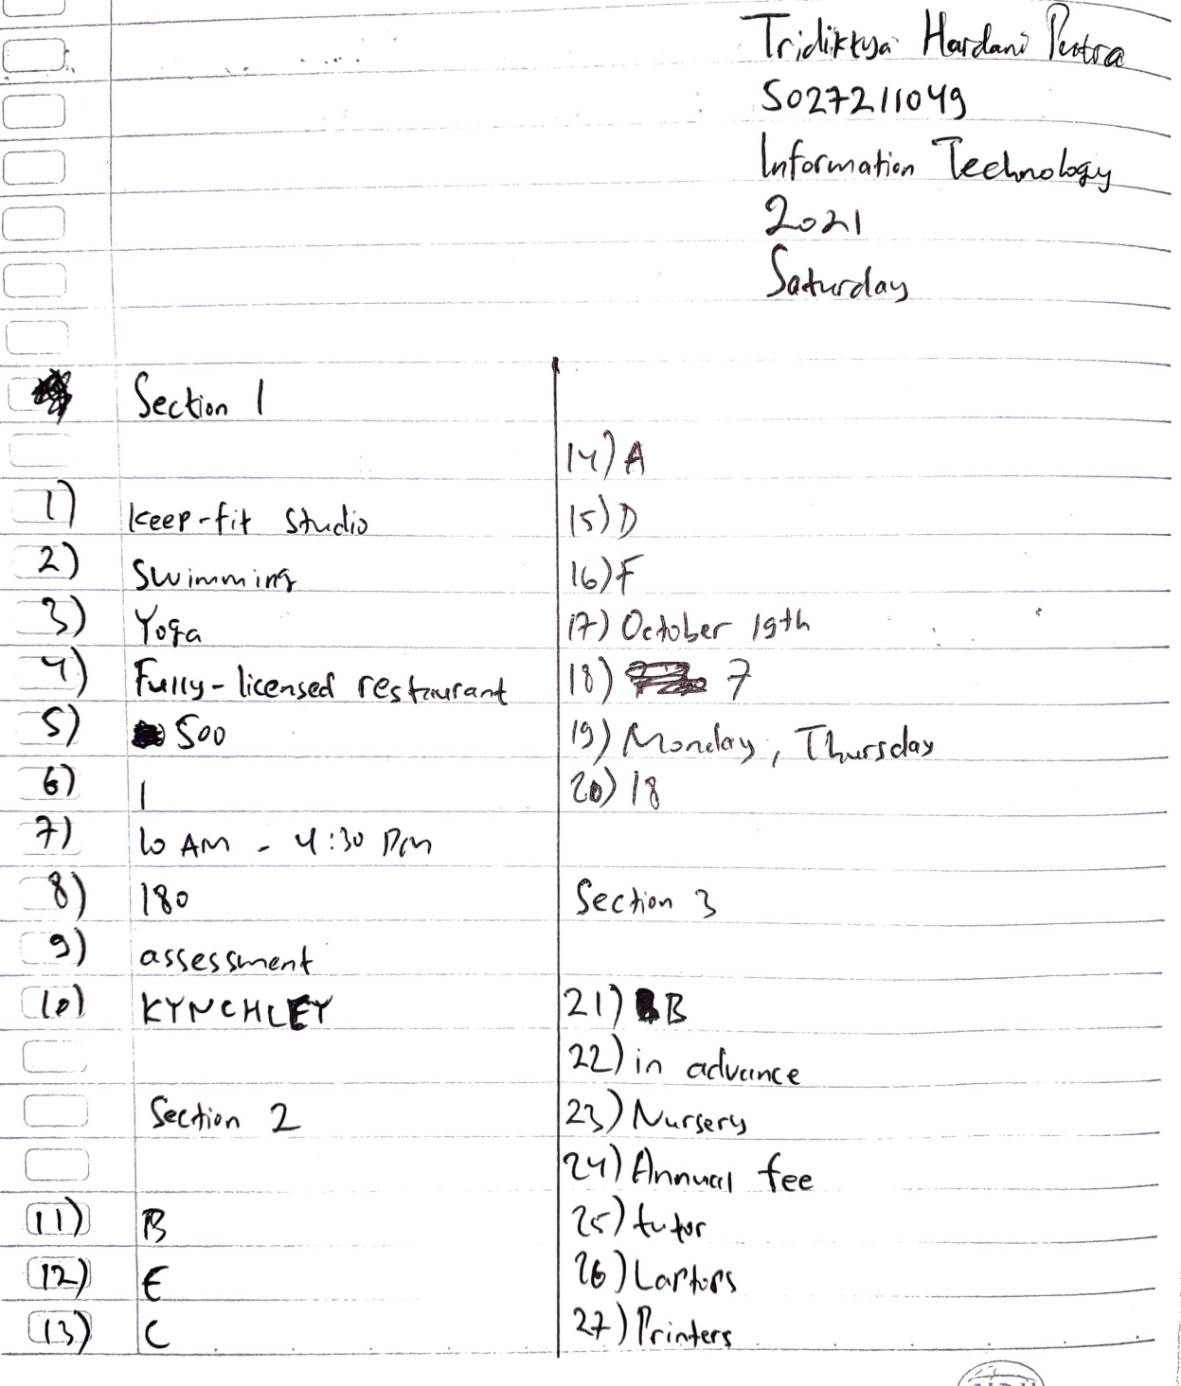 Tridiktya Hardani Putra
5027211049
Information Technology
2021
Saturday
Section 1
1) Keep-fit Studio
2) Swimming
3) Yoga
4) Fully-licensed restaurant
5) 500
6) 1
7) 10 AM - 4:30 PM
8) 180
9) assessment
10) KYNCHLEY
Section 2
11) B
12) E
13) C
14) A
15) D
16) F
17) October 19th
18) 7
19) Monday, Thursday
20) 18
Section 3
21) B
22) in advance
23) Nursery
24) Annual fee
25) tutor
26) Laptops
27) Printers